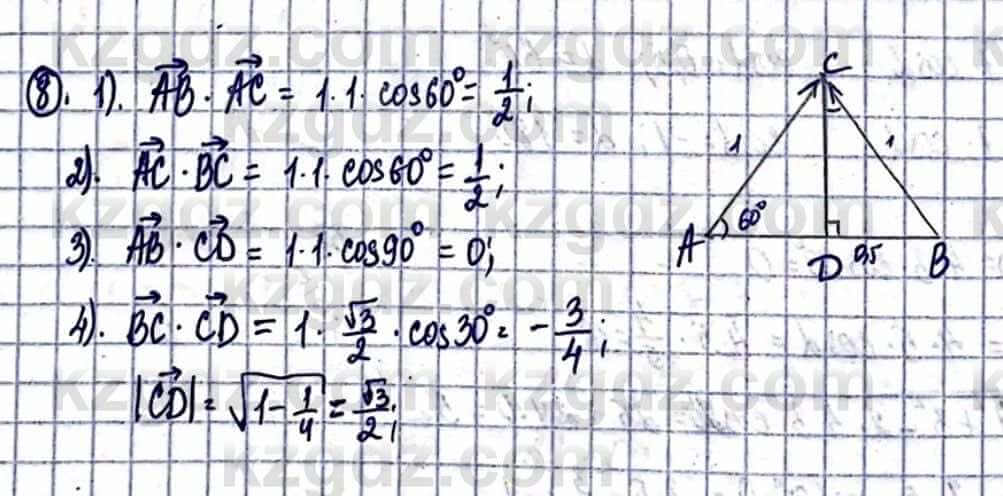 8). 1). AB · AC = 1·1· cos60° = 1/2;
2). AC · BC = 1·1· cos60° = 1/2;
3). AB · CD = 1·1·cos90° = 0;
4). BC · CD = 1 · √3/2 · cos30° = - 3/4;
|CD| = √(1 - 1/4) = √3/2;
C
1 1
A 60° D 0,5 B
kzgdz.com kzgdz.com
kzgdz.com
kzgdz.com kzgdz.com
kzgdz.com
kzgdz.com kzgdz.com
kzgdz.com